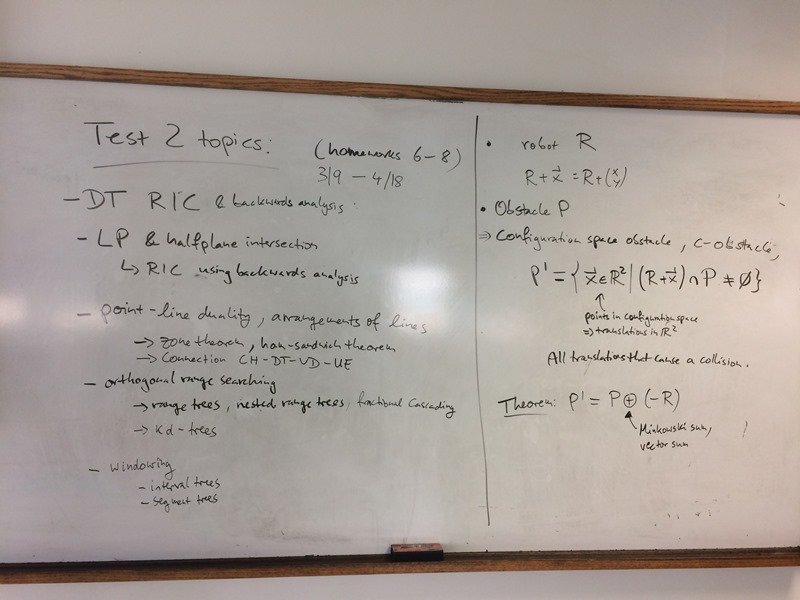 Test 2 topics:
(homeworks 6-8)
3/9 — 4/18
- DT RIC & backwards analysis:
- LP & halfplane intersection
↳ RIC using backwards analysis
- point-line duality, arrangements of lines
→ zone theorem, ham-sandwich theorem
→ Connection CH-DT-VD-UE
- orthogonal range searching
→ range trees, nested range trees, fractional Cascading
→ kd-trees
- windowing
- interval trees
- segment trees
• robot R
R+x⃗ = R+(x y)
• Obstacle P
⇒ Configuration space obstacle, C-obstacle,
P' = {x⃗∈ℝ² | (R+x⃗)∩P ≠ ∅}
points in configuration space
⇒ translations in ℝ²
All translations that cause a collision.
Theorem: P' = P⊕(-R)
Minkowski sum,
vector sum